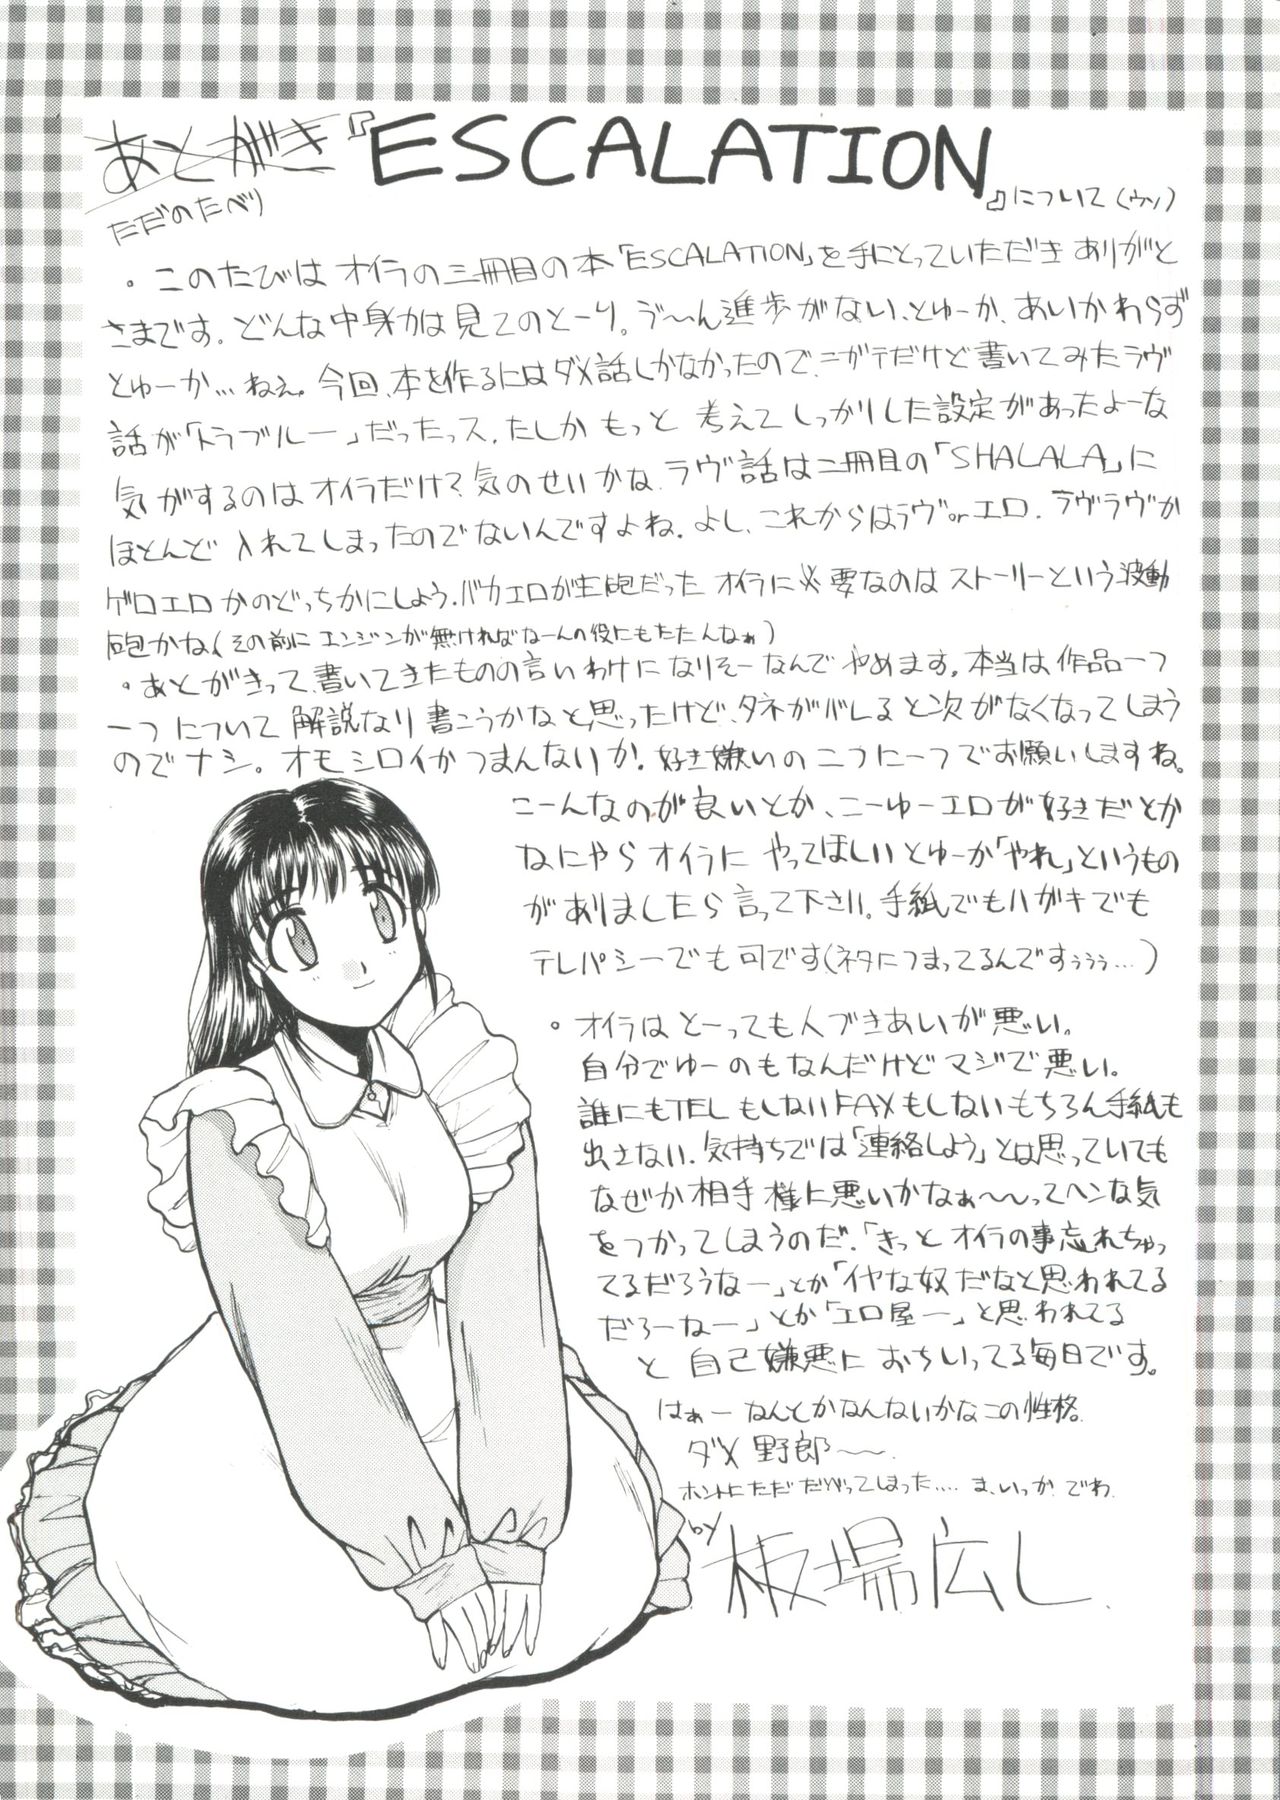 あとがき『ESCALATION』について(ウソ)
ただのたべり
・このたびは オイラの三冊目の本「ESCALATION」を手にとっていただき ありがと
さまです。どんな中身かは見てのとーり。ゔ〜ん進歩がない、とゆーか、あいかわらず
とゆーか…ねぇ。今回、本を作るにはダメ話しかなかったので、ニガテだけど書いてみたラヴ
話が「トラブルー」だったっス。たしか もっと 考えてしっかりした設定があったよーな
気がするのはオイラだけ?気のせいかな。ラヴ話は二冊目の「SHALALA」に
ほとんど 入れてしまったのでないんですよね。よし、これからはラヴorエロ、ラヴラヴか
ゲロエロ かのどっちかにしよう。バカエロが主砲だった オイラに必要なのは ストーリーという波動
砲かな(その前に エンジンが無ければなーんの役にもたたんなぁ)
・あとがきって、書いてきたものの言いわけになりそーなんで やめます。本当は作品一つ
一つ について 解説なり書こうかなと思ったけど、タネがバレると次がなくなってしまう
のでナシ。オモシロイかつまんないか!好き嫌いの二つに一つでお願いしますね。
こーんなのが良いとか、こーゆーエロが好きだとか
なにやらオイラに やってほしいとゆーか「やれ」というもの
がありましたら言って下さい。手紙でもハガキでも
テレパシーでも可です(ネタにつまってるんですぅぅぅ…)
・オイラはとーっても人づきあいが悪い。
自分でゆーのもなんだけどマジで悪い。
誰にもTELもしないFAXもしないもちろん手紙も
出さない。気持ちでは「連絡しよう」とは思っていても
なぜか相手様に悪いかなぁ〜〜ってヘンな気
をつかってしまうのだ。「きっとオイラの事忘れちゃっ
てるだろうなー」とか「イヤな奴だなと思われてる
だろーなー」とか「エロ屋ー」と思われてる
と 自己嫌悪に おちいってる毎日です。
はぁー なんとかなんないかなこの性格。
ダメ野郎〜〜。
ホントにただ だべってしまった....ま、いっか。でわ。
by 板場広し